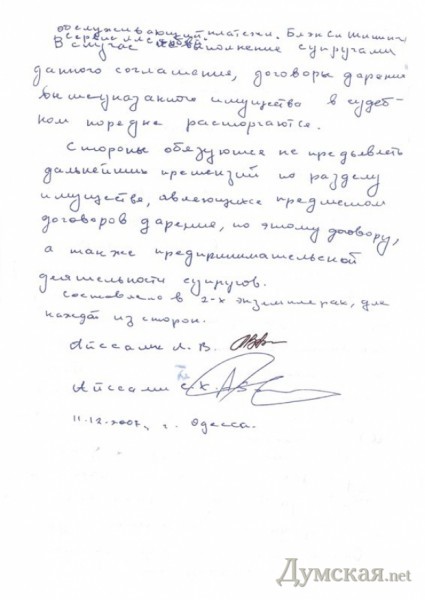 обслуживающий платежи. Блэк Си Шиппинг
Сервис
В случае невыполнение супругами
данного соглашение, договоры дарение
вышеуказанного имущества в судеб-
ном порядке расторгаются.
Стороны обязуются не предъявлять
дальнейших претензий по разделу
имущества, являющихся предметом
договоров дарение, по этому договору,
а также предпринимательской
деятельности супругов.
Составлено в 2-х экземплярах, для
каждой из сторон.
Айссами Л. В.
Айссами С. Х.
11.12.2007, г. Одесса.
Думская.net